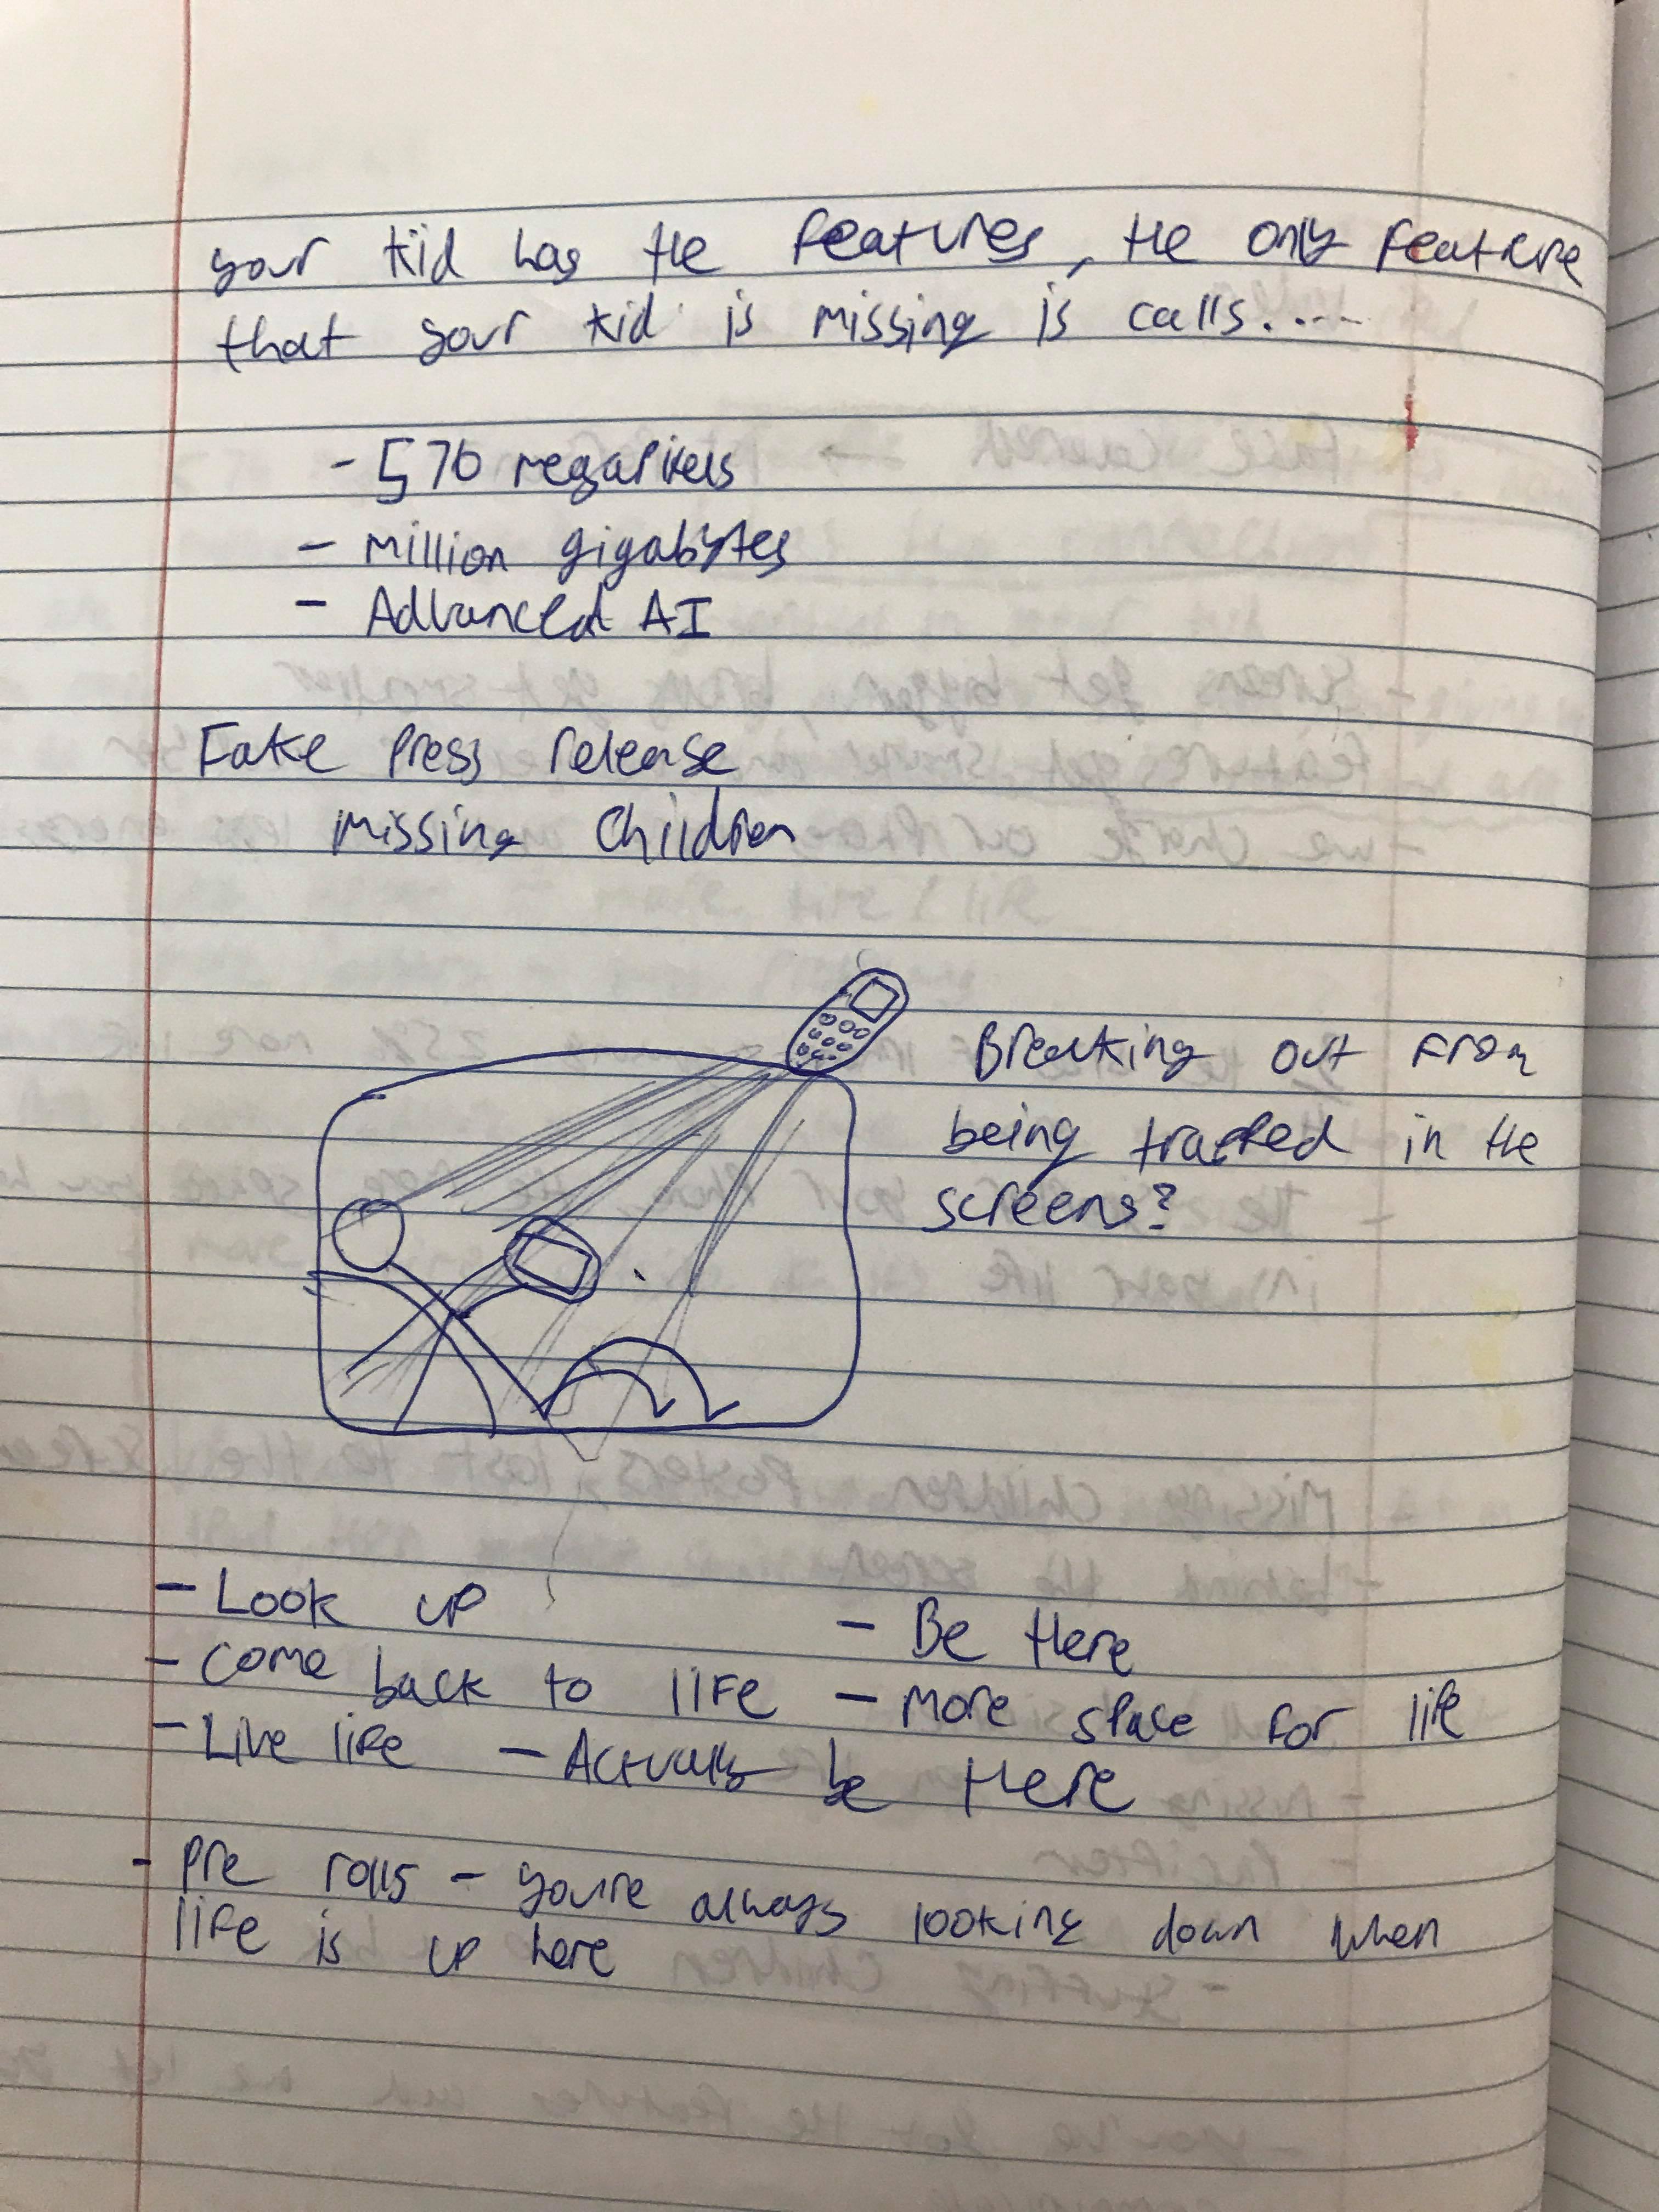 your kid has the features, the only feature
that your kid is missing is calls.....
- 576 megapixels
- Million gigabytes
- Advanced AI
Fake Press release
Missing Children
Breaking out from
being trapped in the
screens?
- Look up
- Be Here
- Come back to life
- More space for life
- Live life
- Actually be Here
- Pre rolls - you're always looking down when
life is up here